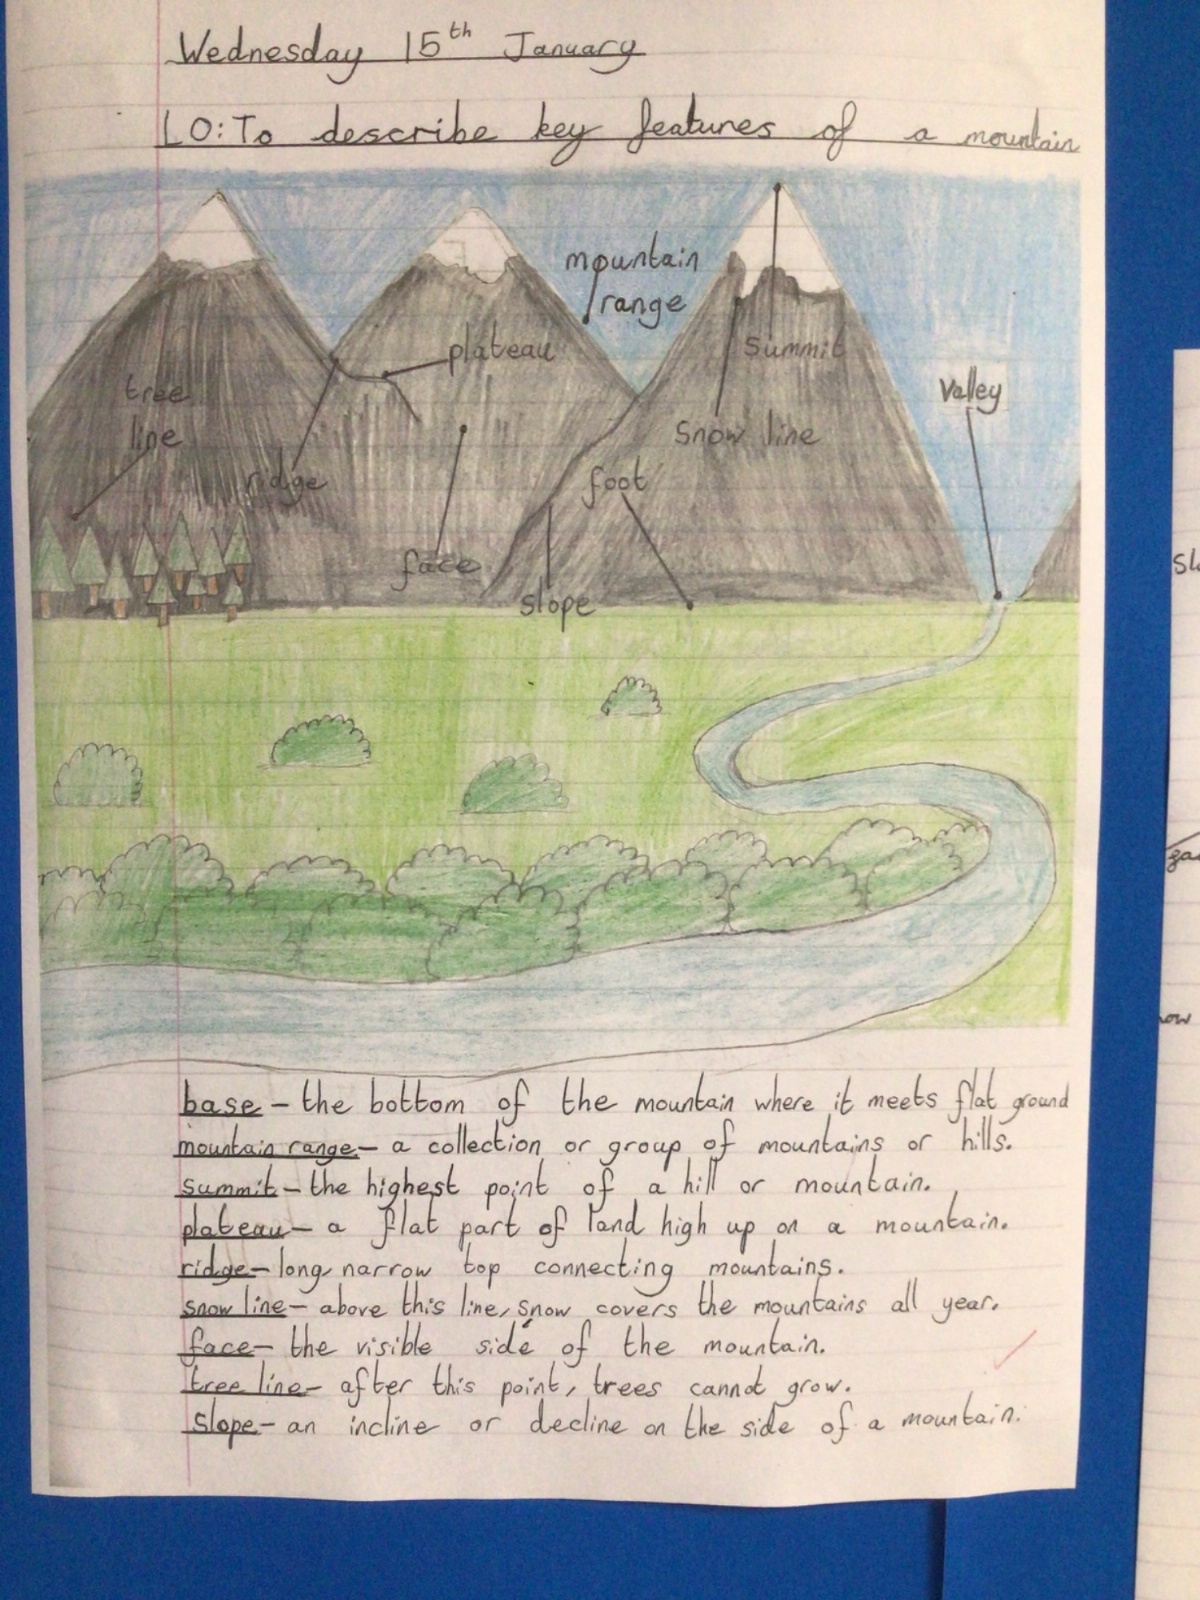 Wednesday 15th January
LO: To describe key features of a mountain
mountain
range
plateau
Summit
tree
line
Valley
Snow line
ridge
foot
face
slope
base - the bottom of the mountain where it meets flat ground
mountain range - a collection or group of mountains or hills.
summit - the highest point of a hill or mountain.
plateau - a flat part of land high up on a mountain.
ridge - long, narrow top connecting mountains.
snow line - above this line, snow covers the mountains all year.
face - the visible side of the mountain.
tree line - after this point, trees cannot grow.
slope - an incline or decline on the side of a mountain.